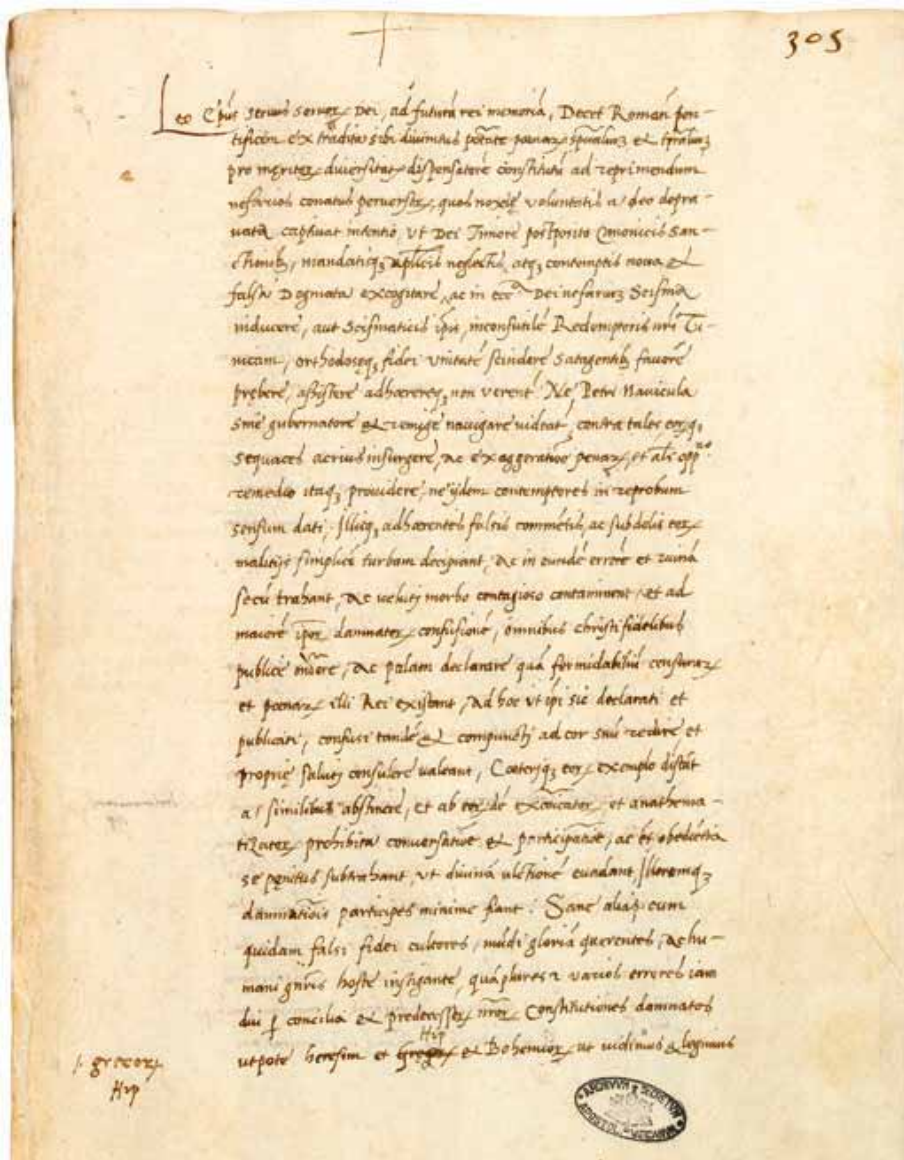 305
Leo Ep̃us Seruus Seruoꝝ Dei, ad futurã rei memoriã, Decet Romanũ pon-
tificem ex tradita sibi diuinitus põtate pœnaꝝ spũaliuʒ et tp̃raliuʒ
pro meritoꝝ diuersitate dispensatorẽ constitutũ ad reprimendum
nefarios conatus peruersoꝝ, quos noxię voluntatis adeo depra-
uata captiuat intentio, ut Dei Timore postposito Canonicis San-
ctionibʒ, mandatisqʒ ap̃licis neglectis, atqʒ contemptis noua et
falsa Dogmata excogitare, ac in ecc.ᵃ Dei nefariuʒ Scisma
inducere, aut Scismaticis ip̃is, inconsutilẽ Redemptoris nr̃i Tu-
nicam, orthodoxęqʒ fidei vnitatẽ scindere satagentibʒ fauorẽ
pręberẽ, assistere adhœrereqʒ non verent', Ne Petri Nauicula
sine gubernatore et remige nauigare videat', contra tales eoꝝqʒ
sequaces acrius insurgere, ac exaggeratione pœnaꝝ, et alio opp.ⁿᵒ
remedio itaqʒ prouidere, ne ijdem contemptores in reprobum
sensum dati, Illisqʒ adhœrentes falsis commentis, ac subdolis eoꝝ
malitijs simplicẽ turbam decipiant, ac in eundẽ errorẽ et ruinã
secũ trahant, ac veluti morbo contagioso contaminent, et ad
maiorẽ ip̃oꝝ damnatoꝝ confusionẽ, omnibus christi fidelibus
publice oñdere, ac palam declarare quã formidabiliũ censuraꝝ
et pœnaꝝ illi Rei existant, ad hoc ut ip̃i sic declarati et
publicati, confusi tandẽ et compuncti ad cor suũ redire et
proprię saluti consulere valeant, Cœteriqʒ eoꝝ exemplo discãt
a similibus abstinere, et ab eoꝝdẽ excõicatoꝝ et anathema-
tizatoꝝ prohibita conuersatione et participatione, ac et obediẽtia
se penitus subtrahant, ut diuinã ultionẽ euadant, Illorumqʒ
damnatiõis participes minime fiant. Sane alias cum
quidam falsi fidei cultores, mũdi gloriã querentes, ac hu-
mani gñris hoste instigante, quãplures et varios errores iam
diu ꝑ concilia et predecessoꝝ nr̃oꝝ Constitutiones damnatos
Hip
utpote heresim et Bohemicoꝝ ut uidimus et legimus
grecoꝝ
Hip
ARCHIVVM SECRETVM APOSTOL. VATICANVM